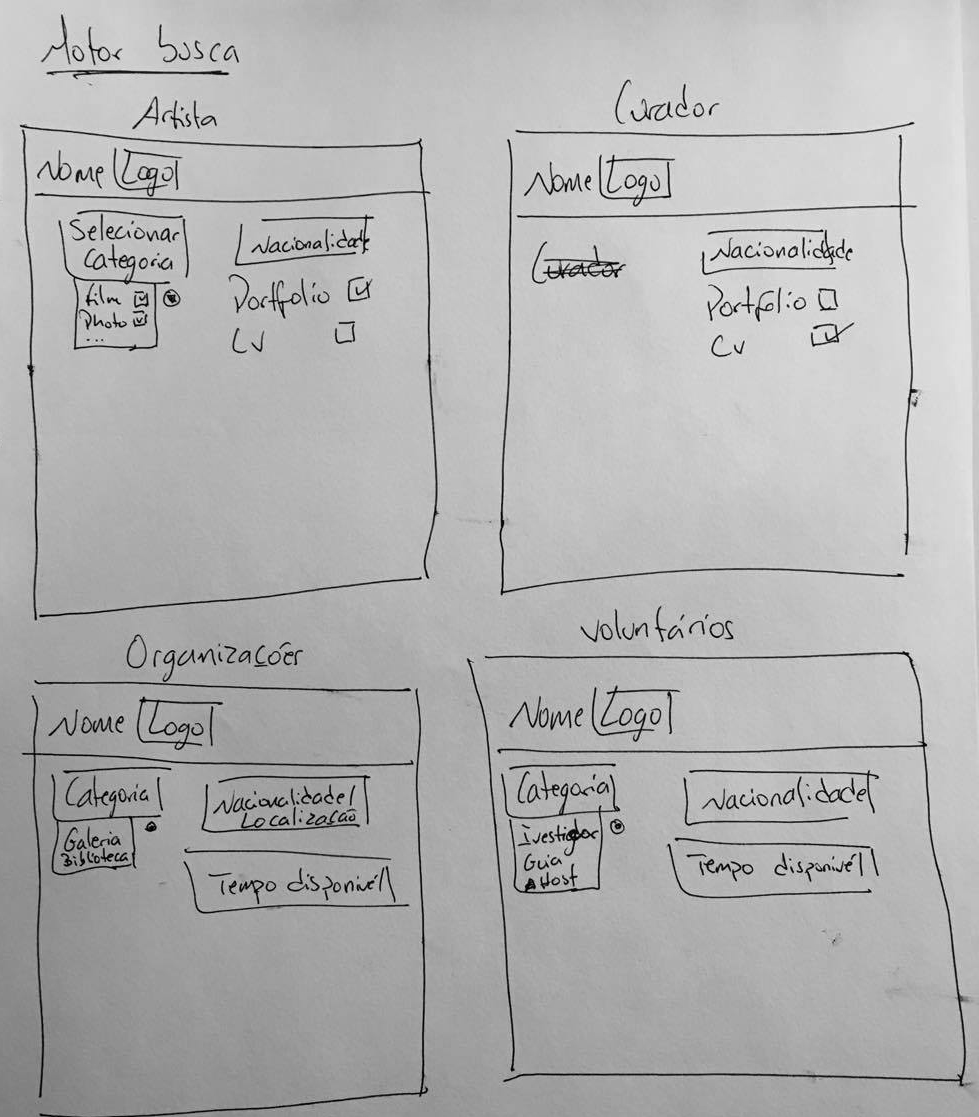 Motor busca
Artista
Nome Logo
Selecionar
Categoria
Film
Photo
...
Nacionalidade
Portfolio
CV
Curador
Nome Logo
Curador
Nacionalidade
Portfolio
CV
Organizações
Nome Logo
Categoria
Galeria
Biblioteca
Nacionalidade/
Localização
Tempo disponivél
Voluntários
Nome Logo
Categoria
Ivestigdor
Guia
Host
Nacionalidade
Tempo disponivél